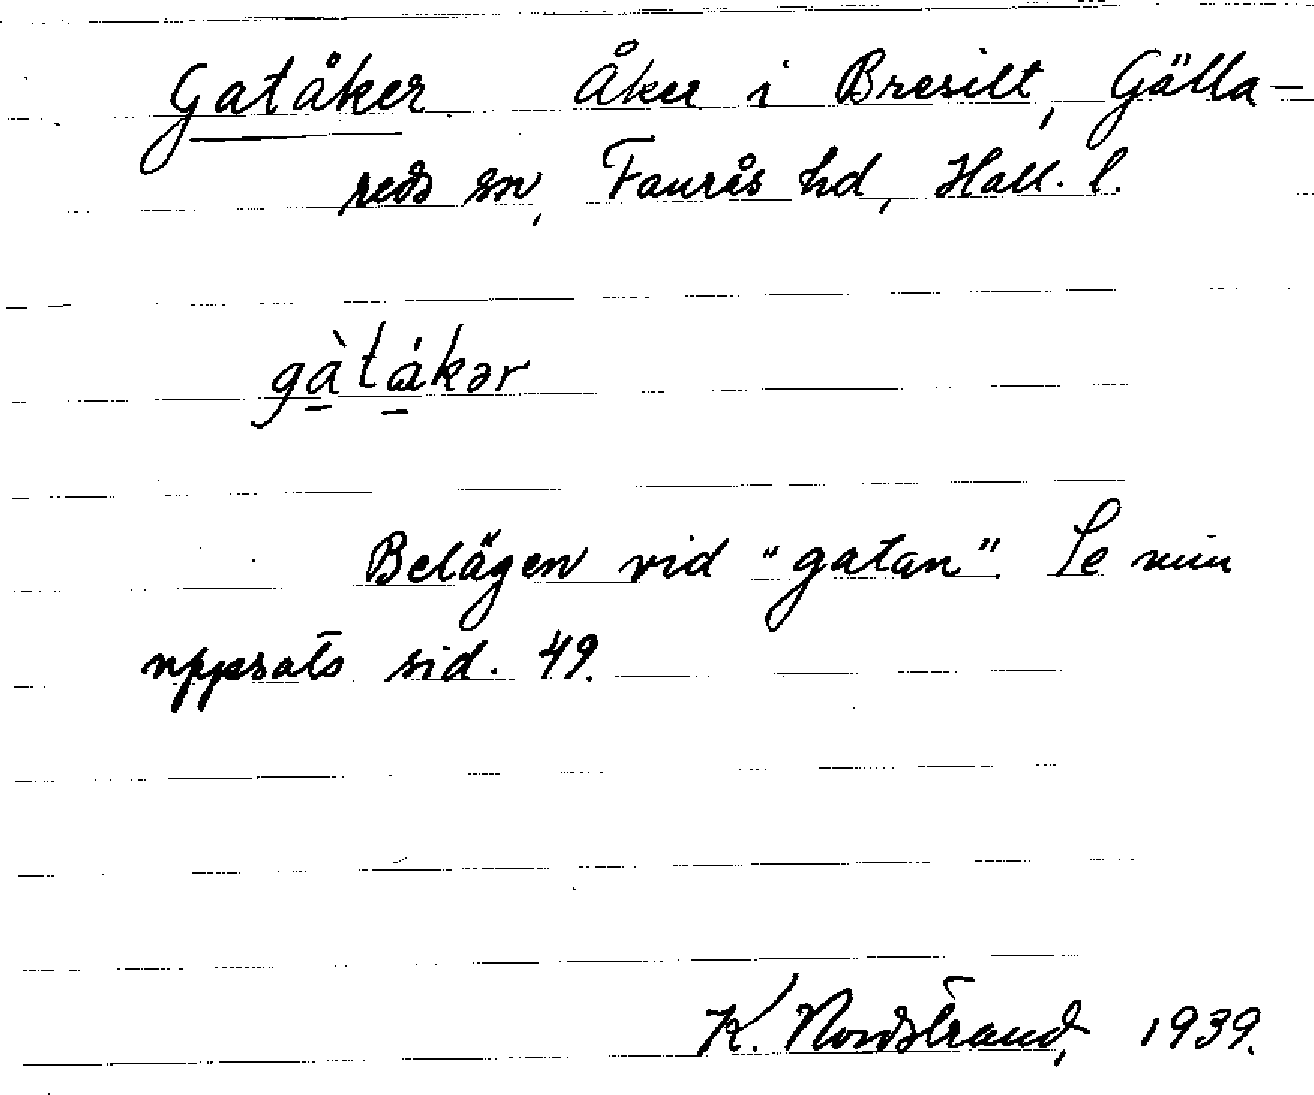 Gatåker Åker i Bresilt, Gälla-
reds sn, Faurås hd, Hall. l.
gàtákər
Belägen vid "gatan". Se min
uppsats sid. 49.
K. Nordstrand, 1939.